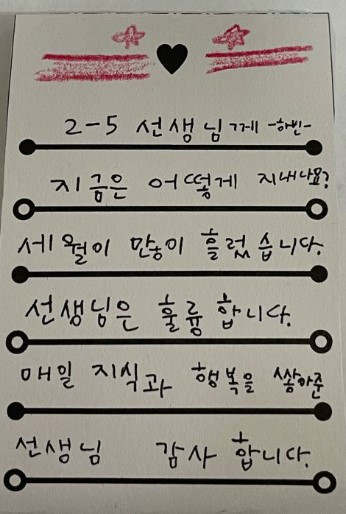 2-5 선생님께 -하빈-
지금은 어떻게 지내나요?
세월이 많이 흘렀습니다.
선생님은 훌륭합니다.
매일 지식과 행복을 쌓아준
선생님 감사합니다.